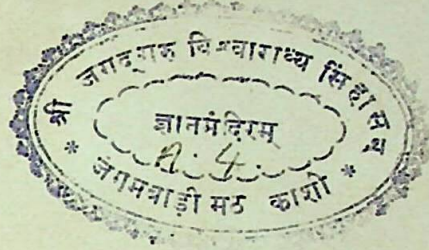 श्री जगद्गुरु विश्वाराध्य सिंहासन
ज्ञानमंदिरम्
A. 4.
* जंगमवाड़ी मठ काशी *